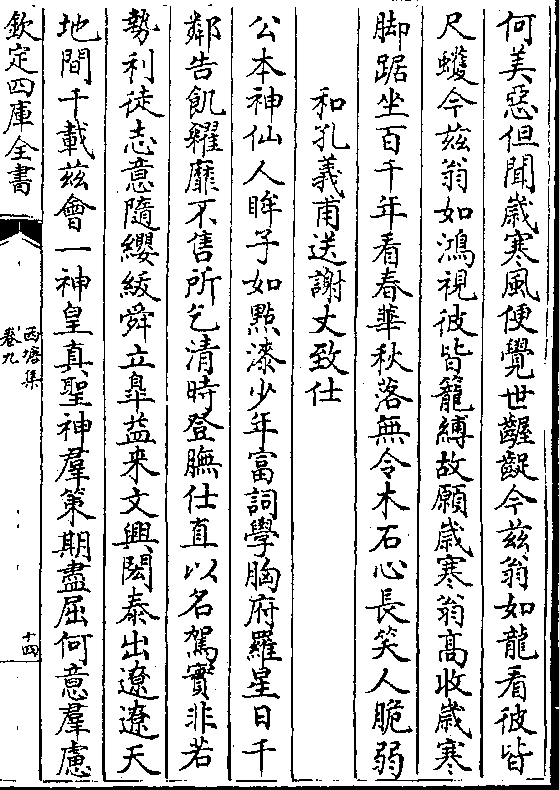 何美惡但聞歲寒風便覺世齷齪今兹翁如龍看彼皆
尺蠖今兹翁如鴻視彼皆籠縛故願歲寒翁高收歲寒
脚踞坐百千年看春華秋落無令木石心長笑人脆弱
和孔義甫送謝丈致仕
公本神仙人眸子如點漆少年富詞學胸府羅星日千
鄰告飢糴靡不售所乞清時登膴仕直以名駕實非若
勢利徒志意隨纓紱舜立臯益来文興閎泰出遼遼天
地間千載兹會一神皇真聖神羣策期盡屈何意羣慮
欽定四庫全書
西塘集
卷九
十四